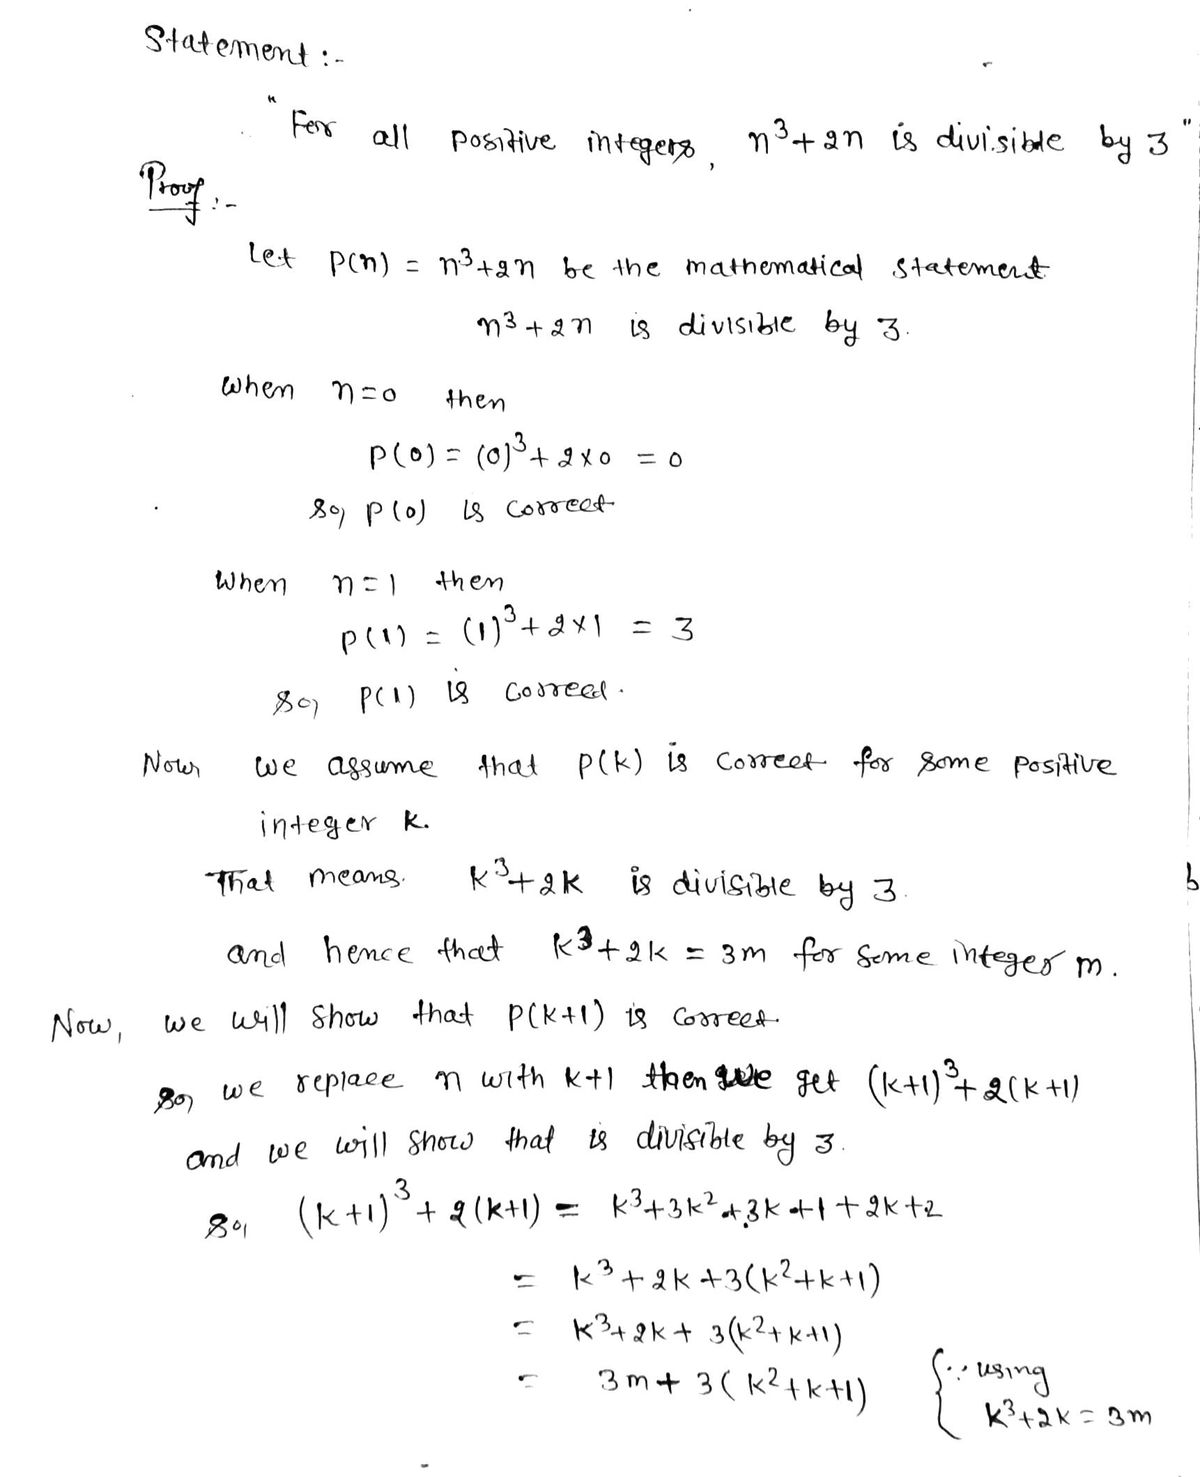 Statement :-
"For all positive integers, n³+2n is divisible by 3"
Proof :-
Let P(n) = n³+2n be the mathematical statement
n³+2n is divisible by 3.
When n=0 then
P(0) = (0)³+2×0 = 0
So, P(0) is correct
When n=1 then
P(1) = (1)³+2×1 = 3
So, P(1) is correct.
Now we assume that P(k) is correct for some positive
integer k.
That means. k³+2k is divisible by 3.
and hence that k³+2k = 3m for some integer m.
Now, we will show that P(k+1) is correct.
So, we replace n with k+1 then we get (k+1)³+2(k+1)
and we will show that is divisible by 3.
So, (k+1)³+2(k+1) = k³+3k²+3k+1+2k+2
= k³+2k+3(k²+k+1)
= k³+2k+ 3(k²+k+1)
= 3m+3(k²+k+1) {∵ using
k³+2k=3m